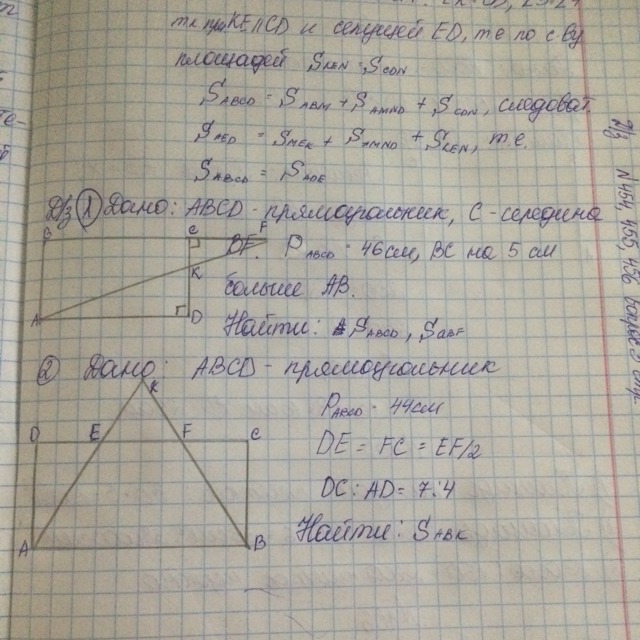 т.к. при KE∥CD и секущей ED, то по св-ву
площадей S KEN = S CDN
S ABCD = S ABM + S AMND + S CDN, следоват
S AED = S MEK + S AMND + S KEN, т.е.
S ABCD = S ADE
Д/з ① Дано: ABCD - прямоугольник, C - середина
BF. P ABCD = 46 см, BC на 5 см
больше AB.
Найти: S ABCD, S ABF
B C F
K
A D
② Дано: ABCD - прямоугольник
P ABCD = 44 см
DE = FC = EF/2
DC : AD = 7:4
Найти: S ABK
K
D E F C
A B
Д/з N 454, 455, 456